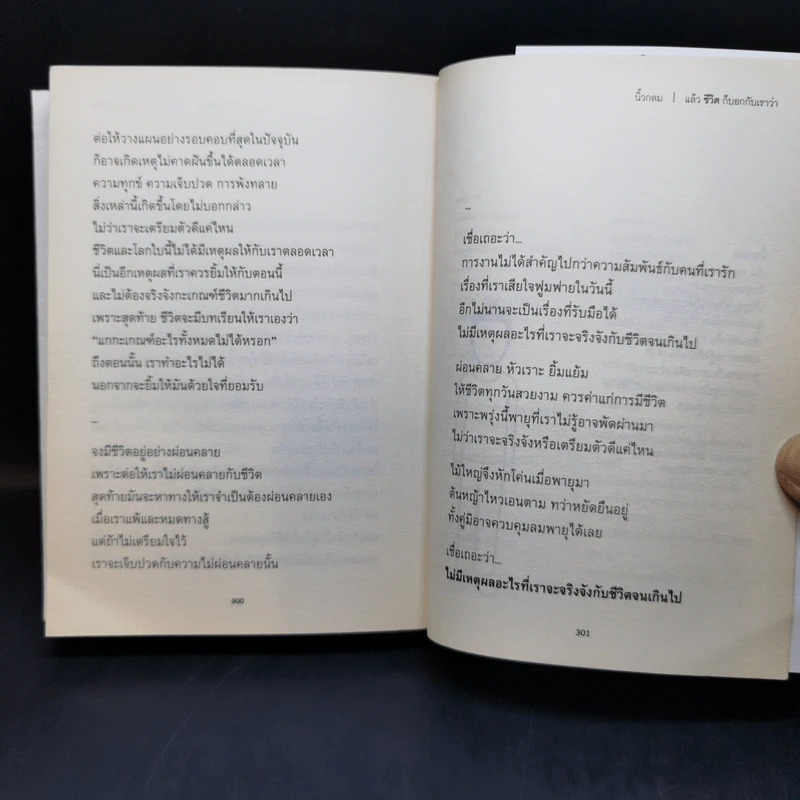 ต่อให้วางแผนอย่างรอบคอบที่สุดในปัจจุบัน
ก็อาจเกิดเหตุไม่คาดฝันขึ้นได้ตลอดเวลา
ความทุกข์ ความเจ็บปวด การพังทลาย
สิ่งเหล่านี้เกิดขึ้นโดยไม่บอกกล่าว
ไม่ว่าเราจะเตรียมตัวดีแค่ไหน
ชีวิตและโลกใบนี้ไม่ได้มีเหตุผลให้กับเราตลอดเวลา
นี่เป็นอีกเหตุผลที่เราควรยิ้มให้กับตอนนี้
และไม่ต้องจริงจังกะเกณฑ์ชีวิตมากเกินไป
เพราะสุดท้าย ชีวิตจะมีบทเรียนให้เราเองว่า
“แกกะเกณฑ์อะไรทั้งหมดไม่ได้หรอก”
ถึงตอนนั้น เราทำอะไรไม่ได้
นอกจากจะยิ้มให้มันด้วยใจที่ยอมรับ
...
จงมีชีวิตอยู่อย่างผ่อนคลาย
เพราะต่อให้เราไม่ผ่อนคลายกับชีวิต
สุดท้ายมันจะหาทางให้เราจำเป็นต้องผ่อนคลายเอง
เมื่อเราแพ้และหมดทางสู้
แต่ถ้าไม่เตรียมใจไว้
เราจะเจ็บปวดกับความไม่ผ่อนคลายนั้น
300
นิ้วกลม | แล้ว ชีวิต ก็บอกกับเราว่า
...
เชื่อเถอะว่า...
การงานไม่ได้สำคัญไปกว่าความสัมพันธ์กับคนที่เรารัก
เรื่องที่เราเสียใจฟูมฟายในวันนี้
อีกไม่นานจะเป็นเรื่องที่รับมือได้
ไม่มีเหตุผลอะไรที่เราจะจริงจังกับชีวิตจนเกินไป
ผ่อนคลาย หัวเราะ ยิ้มแย้ม
ให้ชีวิตทุกวันสวยงาม ควรค่าแก่การมีชีวิต
เพราะพรุ่งนี้พายุที่เราไม่รู้อาจพัดผ่านมา
ไม่ว่าเราจะจริงจังหรือเตรียมตัวดีแค่ไหน
ไม้ใหญ่จึงหักโค่นเมื่อพายุมา
ต้นหญ้าไหวเอนตาม ทว่าหยัดยืนอยู่
ทั้งคู่มิอาจควบคุมลมพายุได้เลย
เชื่อเถอะว่า...
ไม่มีเหตุผลอะไรที่เราจะจริงจังกับชีวิตจนเกินไป
301